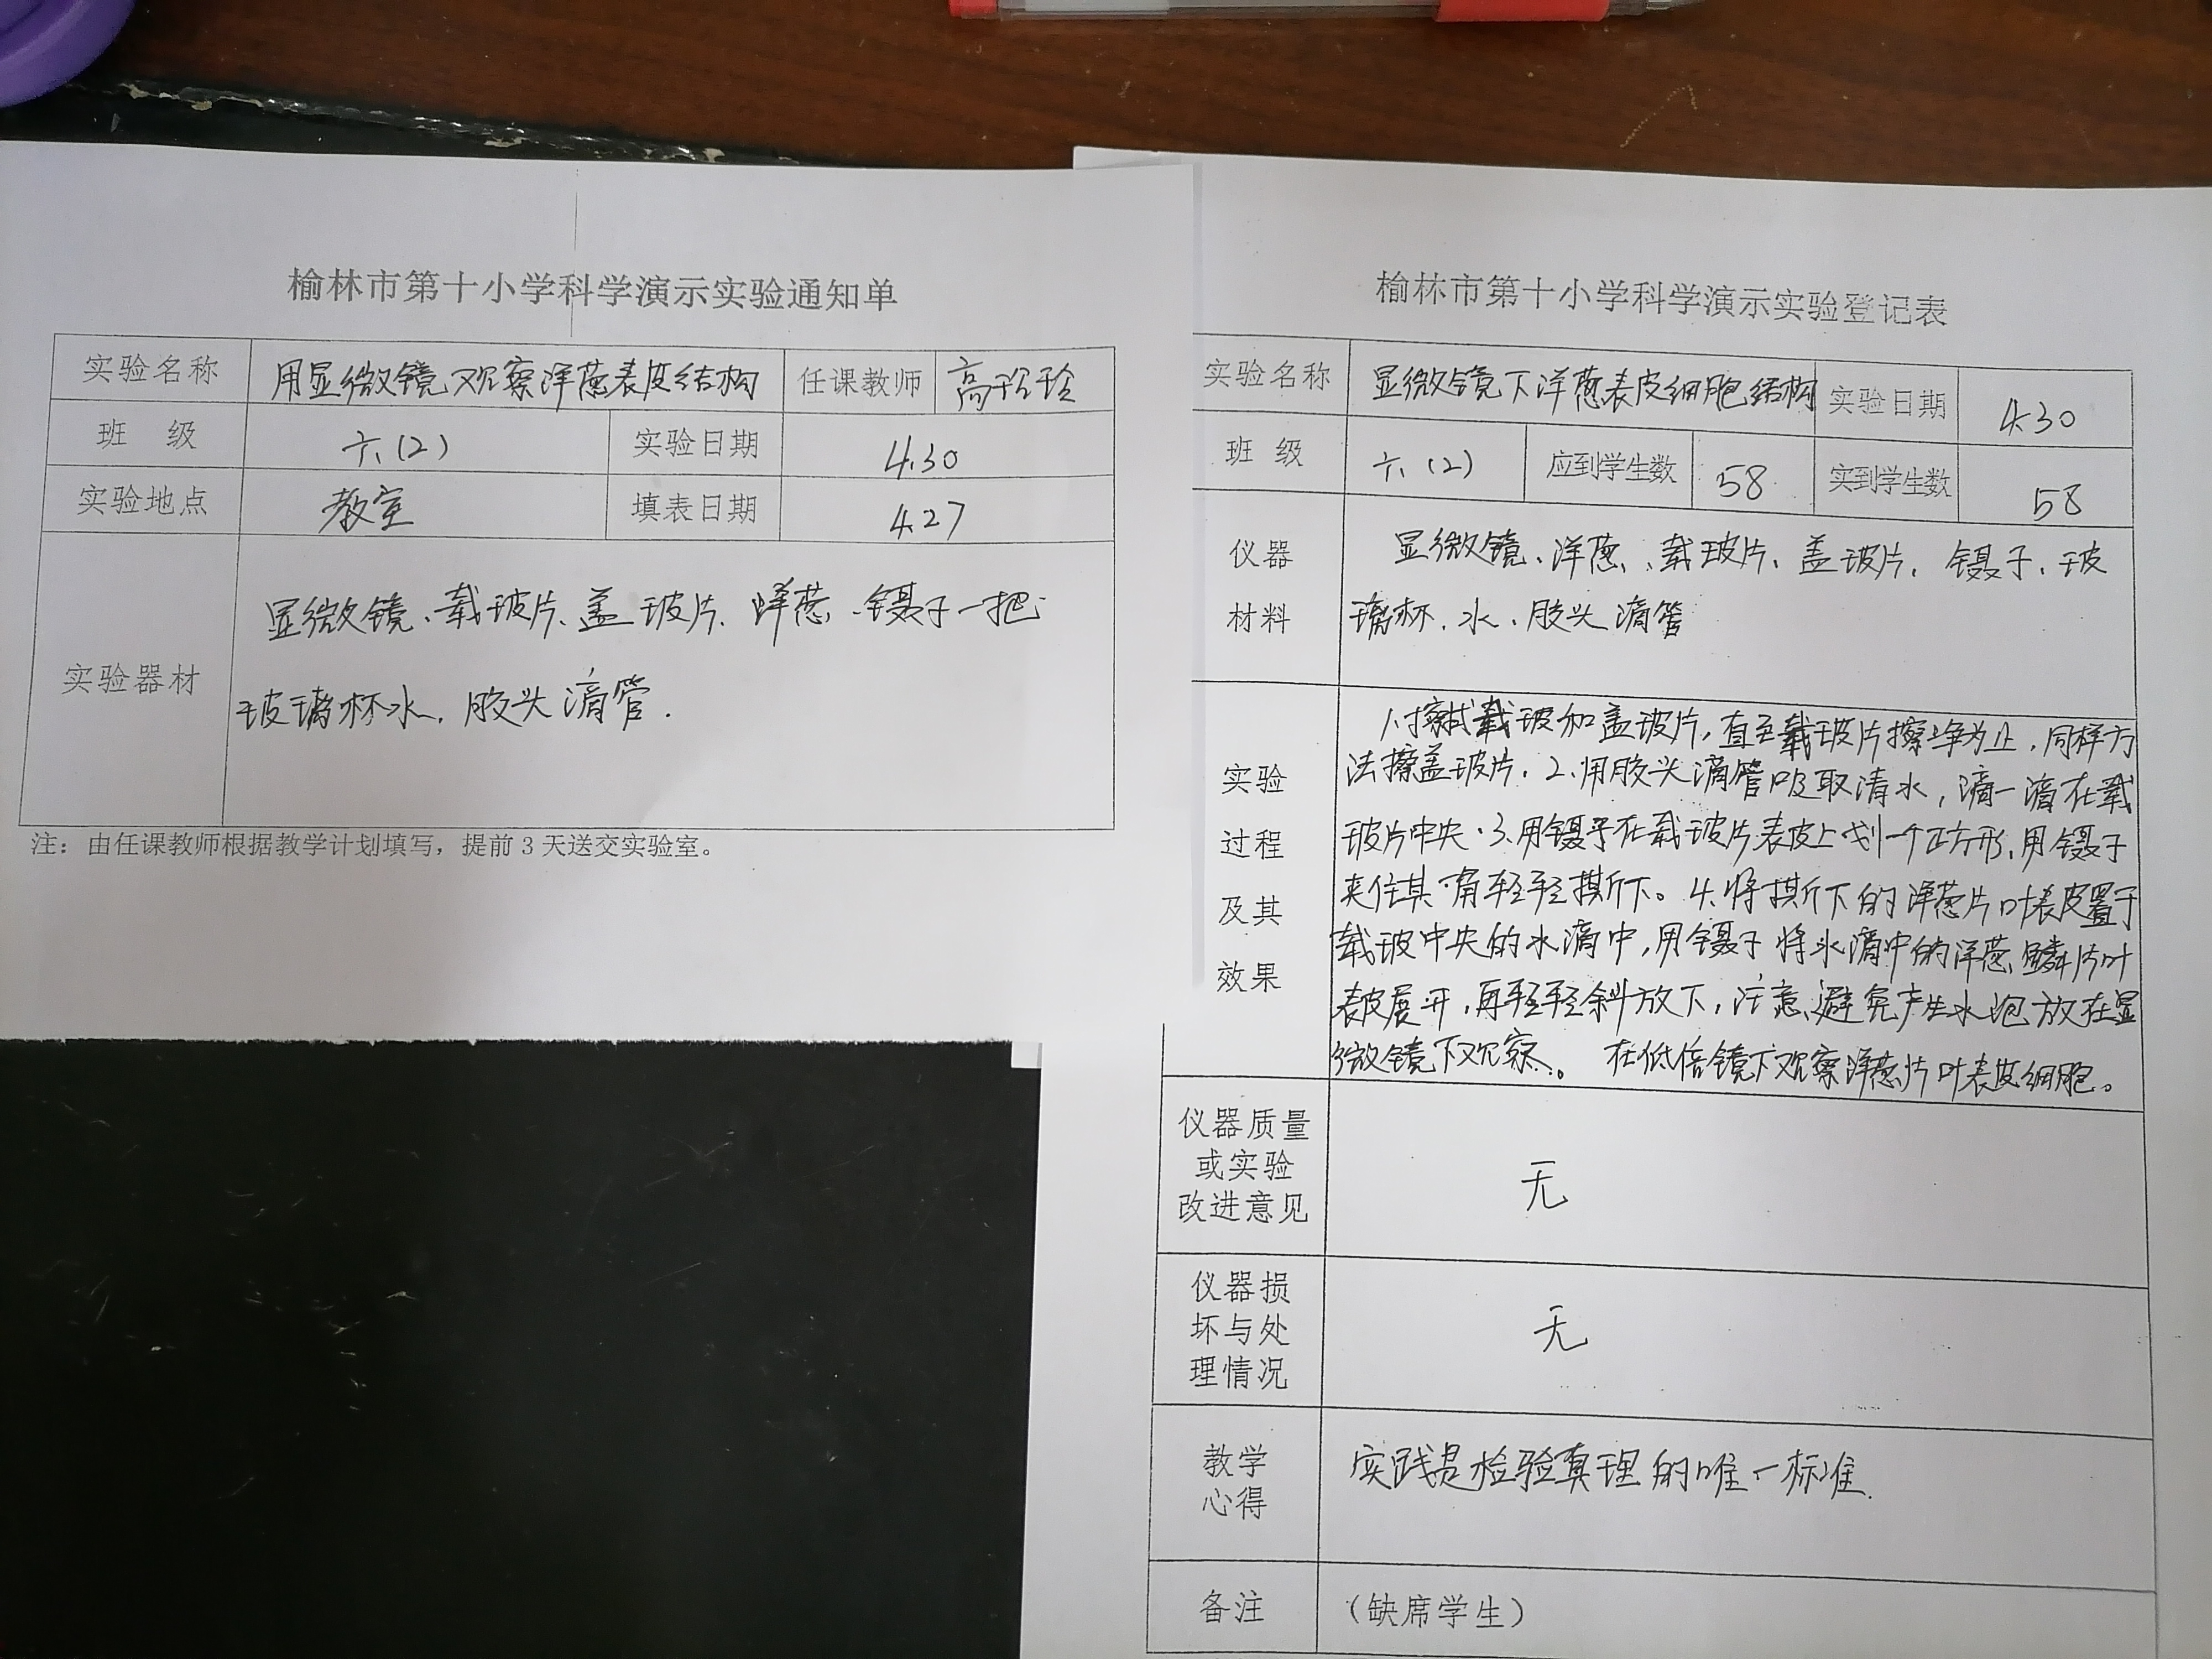 榆林市第十小学科学演示实验通知单
实验名称 用显微镜观察洋葱表皮结构 任课教师 高
班 级 六(2) 实验日期 4.30
实验地点 教室 填表日期 4.27
实验器材
显微镜、载玻片、盖玻片、洋葱、镊子一把
玻璃杯水、胶头滴管.
注：由任课教师根据教学计划填写，提前3天送交实验室。
榆林市第十小学科学演示实验登记表
实验名称 显微镜下洋葱表皮细胞结构 实验日期 4.30
班 级 六(2) 应到学生数 58 实到学生数 58
仪器
材料
显微镜、洋葱、载玻片、盖玻片、镊子、玻
璃杯、水、胶头滴管
实验
过程
及其
效果
擦拭载玻和盖玻片，直至载玻片擦净为止，同样方
法擦盖玻片. 2.用胶头滴管吸取清水，滴一滴在载
玻片中央. 3.用镊子在载玻片表皮上划一个正方形，用镊子
夹住其一角轻轻撕下。4.将撕下的洋葱片叶表皮置于
载玻中央的水滴中，用镊子将水滴中的洋葱鳞片叶
表皮展开，再轻轻斜放下，注意避免产生水泡放在显
微镜下观察。 在低倍镜下观察洋葱片叶表皮细胞。
仪器质量
或实验
改进意见
无
仪器损
坏与处
理情况
无
教学
心得
实践是检验真理的唯一标准.
备注 （缺席学生）